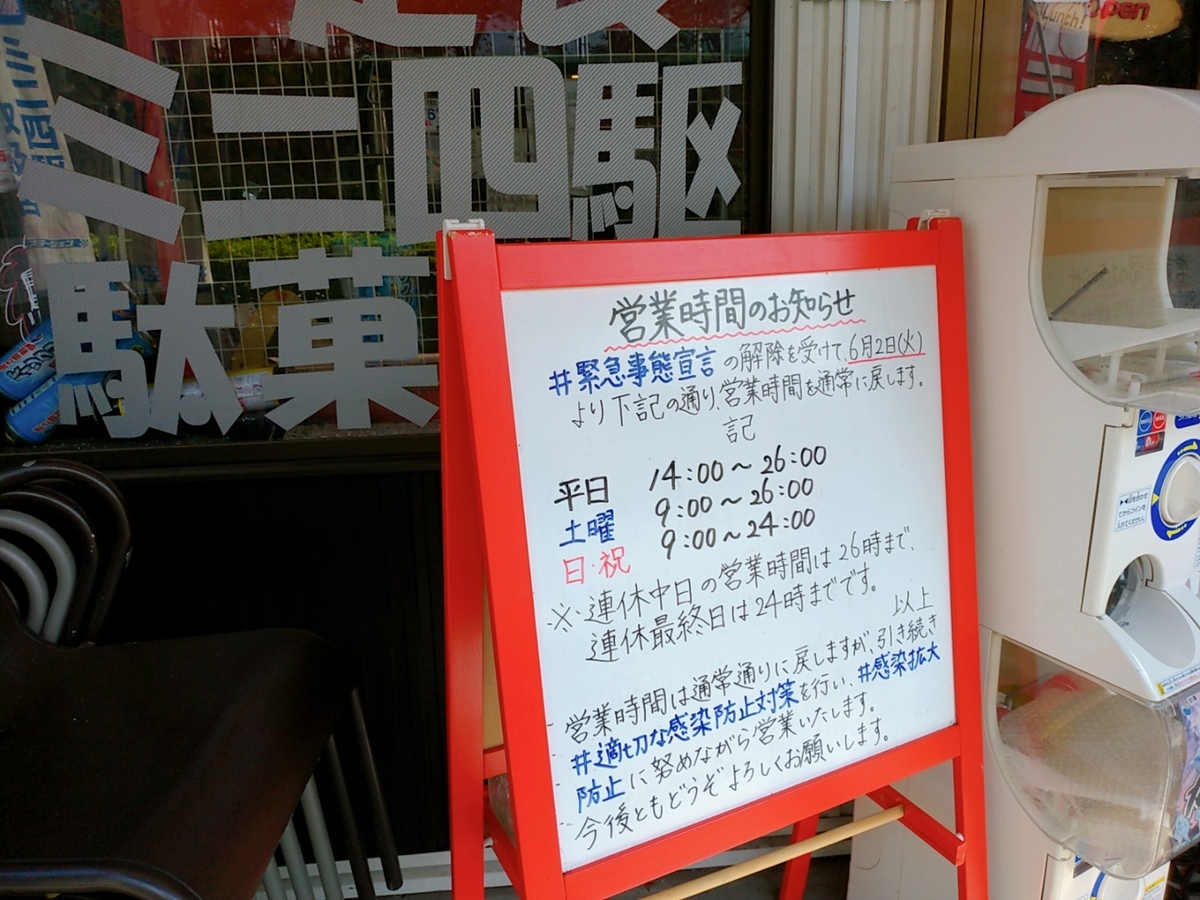 ミニ四駆
駄菓
Lunch!
Open
営業時間のお知らせ
#緊急事態宣言の解除を受けて、6月2日(火)
より下記の通り、営業時間を通常に戻します。
記
平日 14:00～26:00
土曜 9:00～26:00
日・祝 9:00～24:00
※・連休中日の営業時間は26時まで、
連休最終日は24時までです。
以上
営業時間は通常通りに戻しますが、引き続き
#適切な感染防止対策を行い、#感染拡大
防止に努めながら営業いたします。
今後ともどうぞよろしくお願いします。